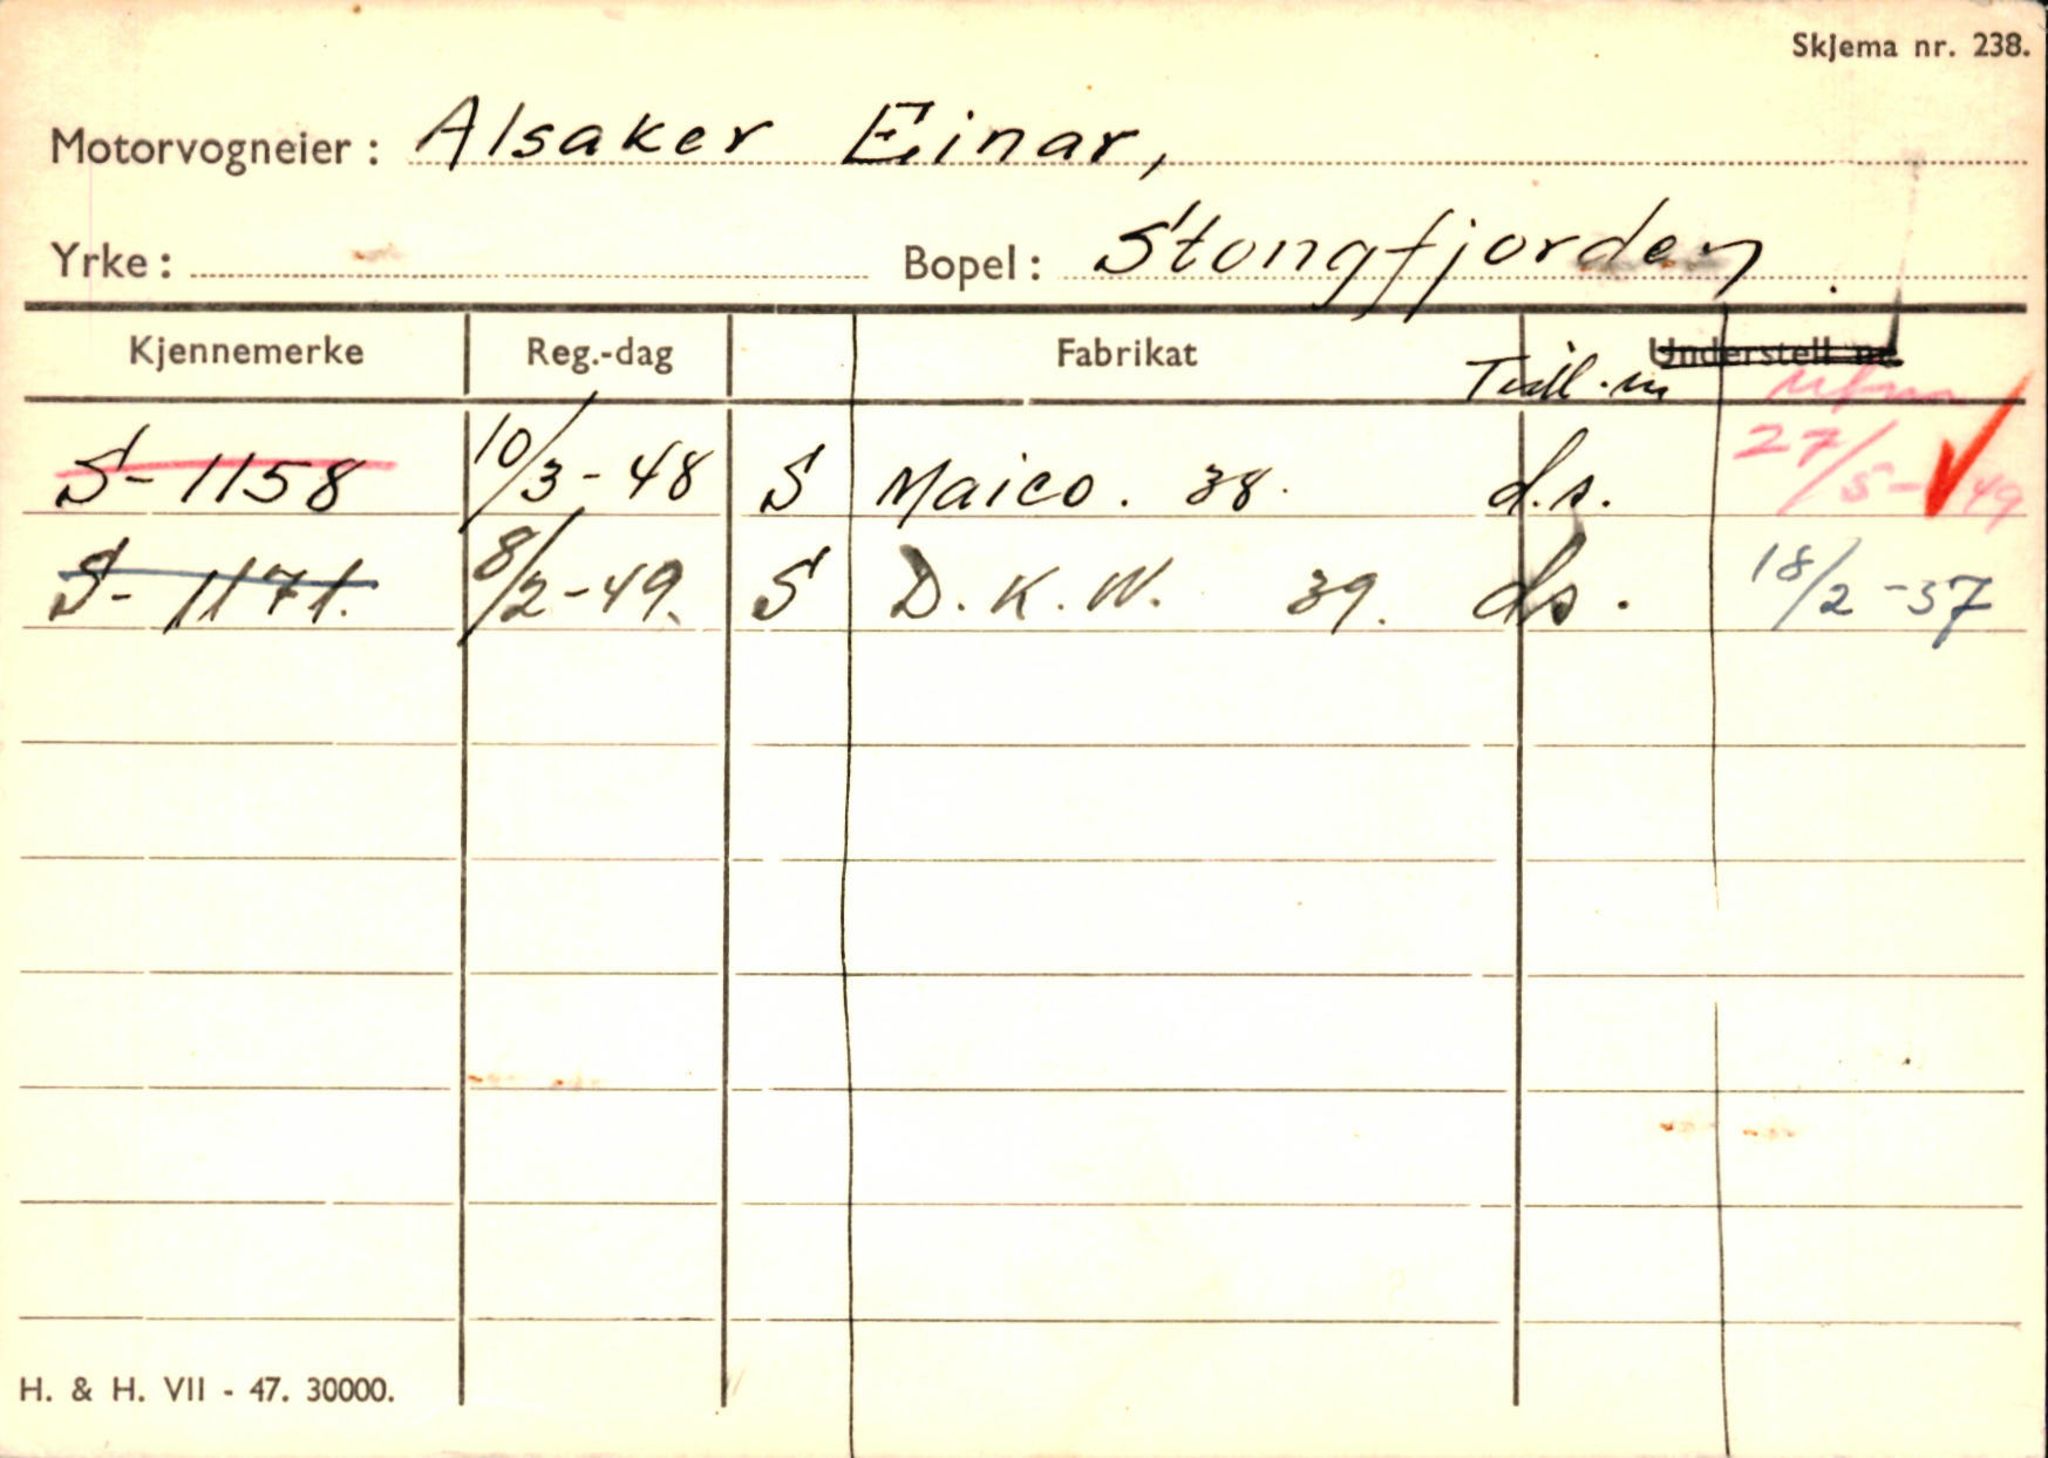 Skjema nr. 238.
Motorvogneier: Alsaker Einar,
Yrke: Bopel: Stongfjorden.
Kjennemerke Reg.-dag Fabrikat Understell nr.
S-1158 10/3-48 S Maico. 38. d.s. 27/5-49
S-1171. 8/2-49. S D.K.W. 39. ds. 18/2-57
H. & H. VII - 47. 30000.